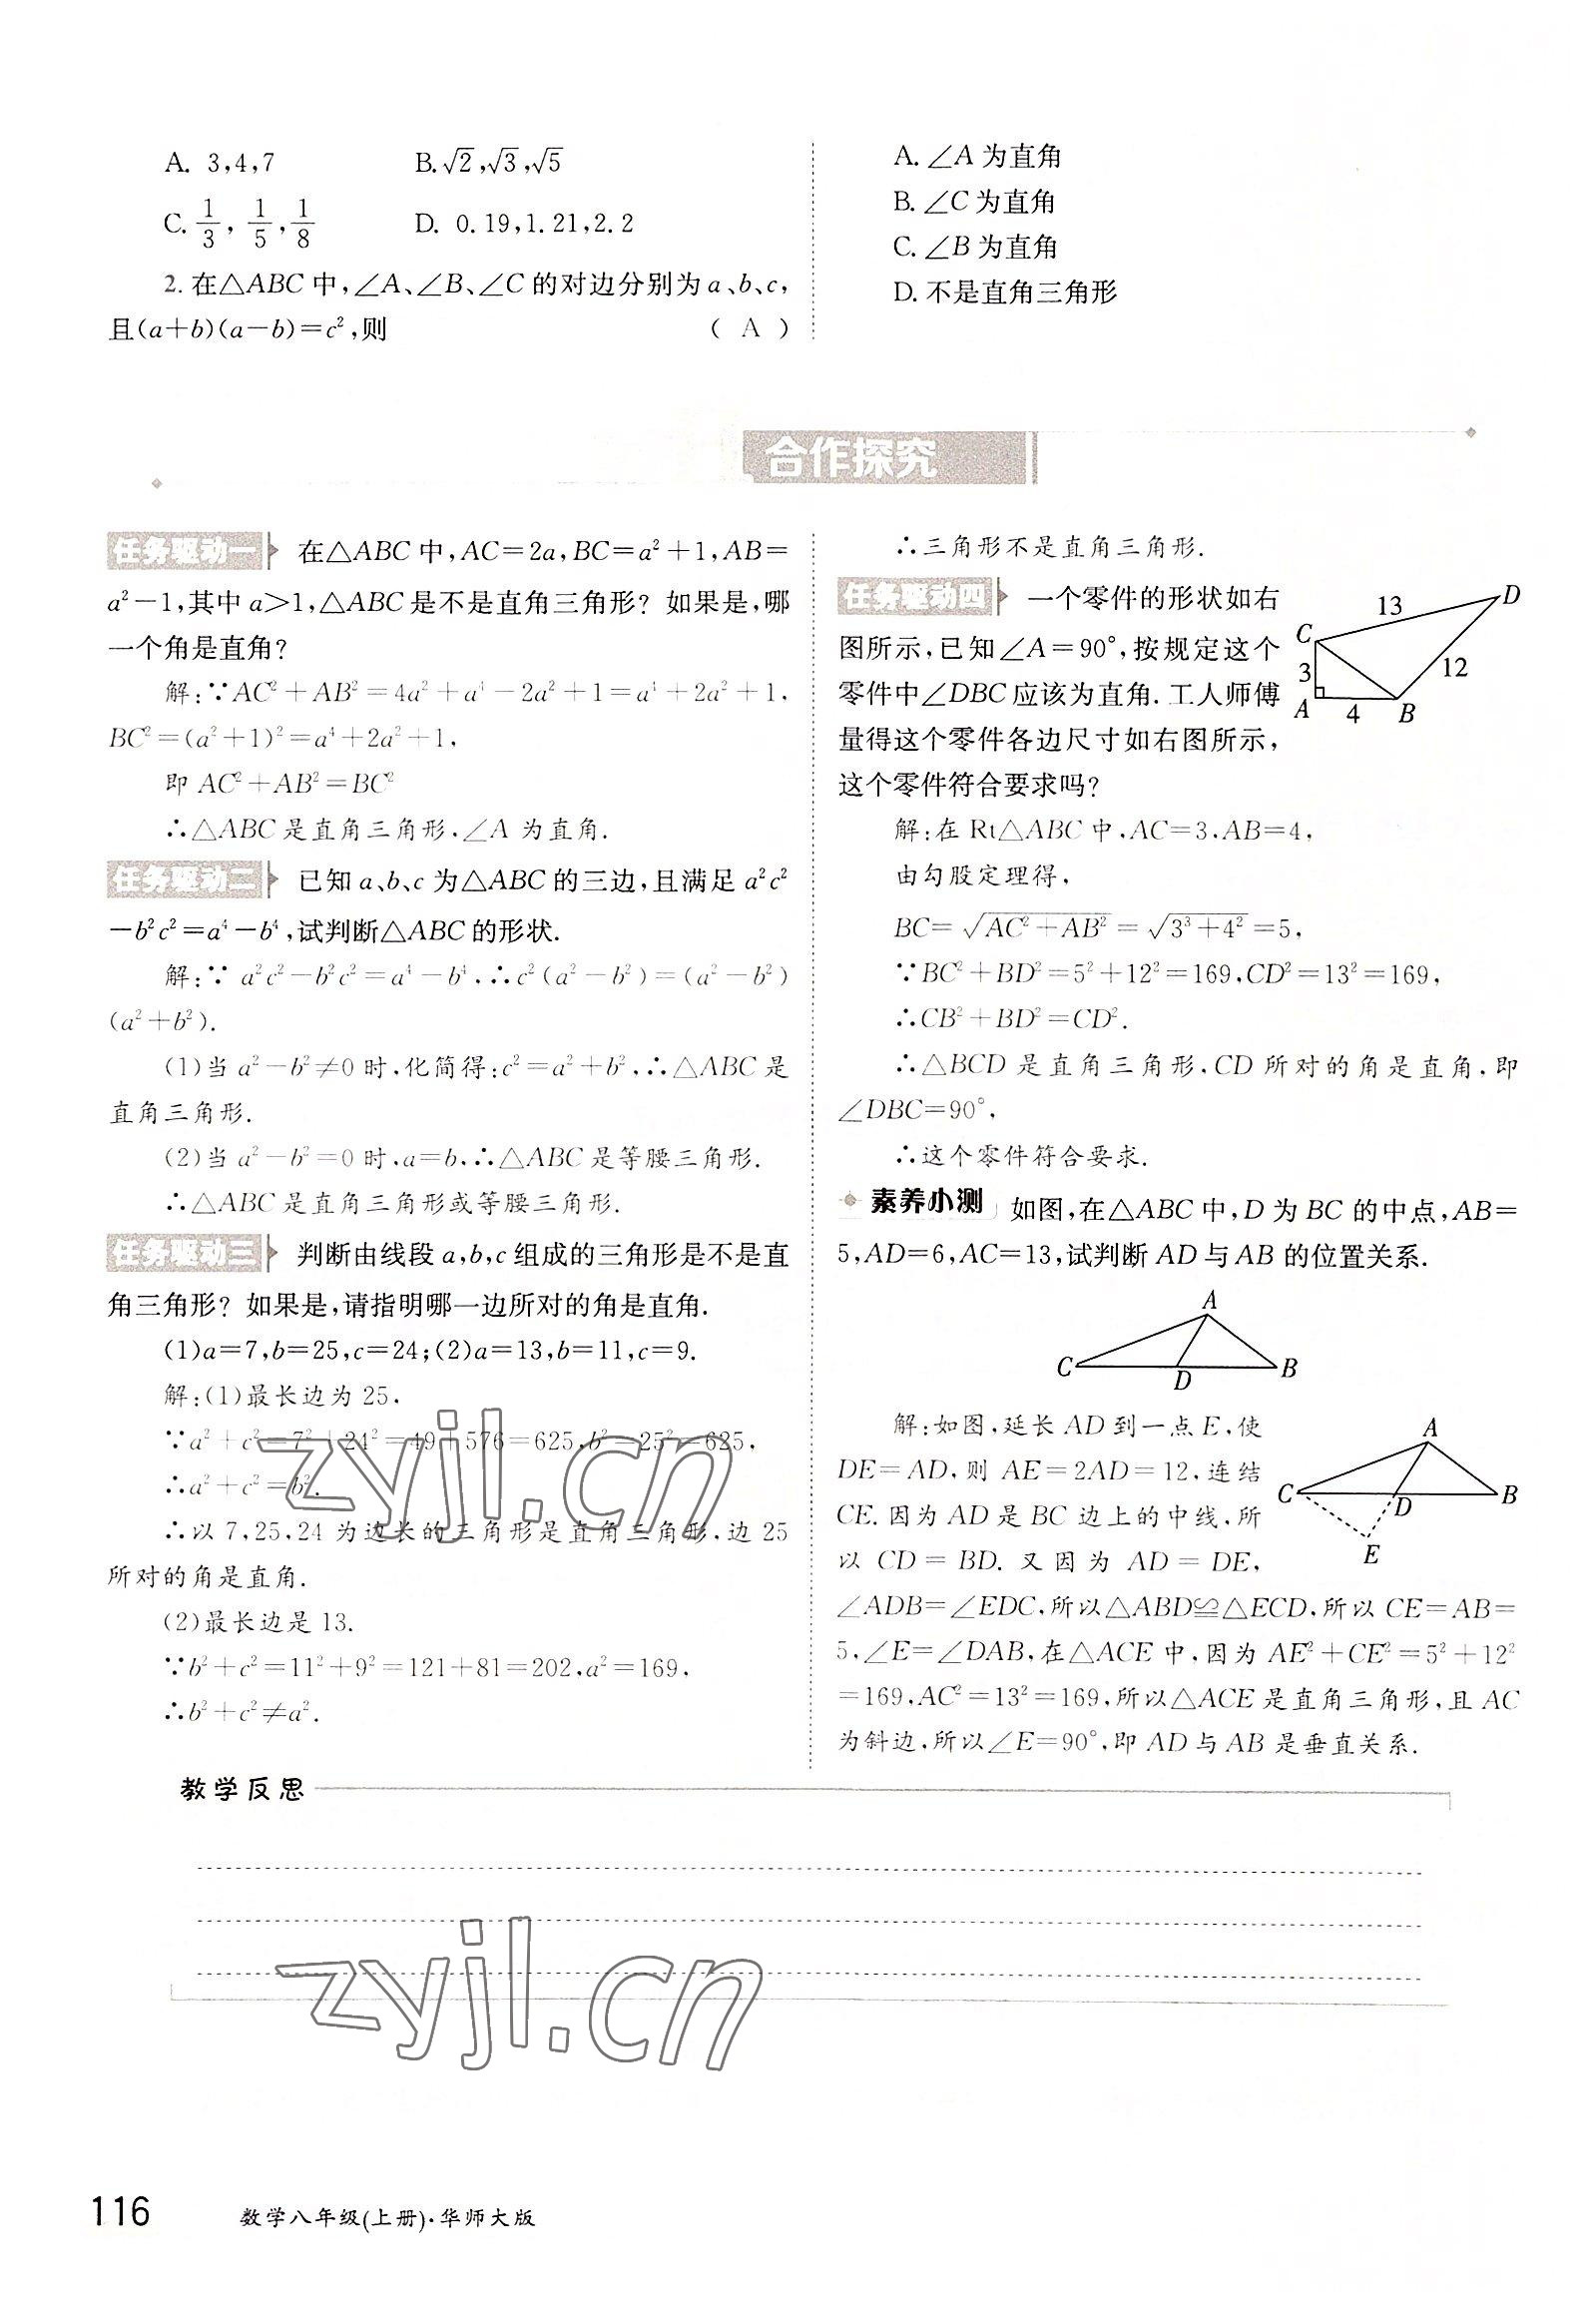 A. 3,4,7　B. √2,√3,√5
C. 1/3, 1/5, 1/8　D. 0.19,1.21,2.2
2. 在△ABC中,∠A、∠B、∠C的对边分别为a、b、c,
且(a+b)(a-b)=c²,则（ A ）
A. ∠A为直角
B. ∠C为直角
C. ∠B为直角
D. 不是直角三角形
合作探究
任务驱动一 在△ABC中,AC=2a,BC=a²+1,AB=
a²-1,其中a>1,△ABC是不是直角三角形? 如果是,哪
一个角是直角?
解:∵AC²+AB²=4a²+a⁴-2a²+1=a⁴+2a²+1,
BC²=(a²+1)²=a⁴+2a²+1,
即AC²+AB²=BC²
∴△ABC是直角三角形,∠A为直角.
任务驱动二 已知a、b、c为△ABC的三边,且满足a²c²
-b²c²=a⁴-b⁴,试判断△ABC的形状.
解:∵a²c²-b²c²=a⁴-b⁴,∴c²(a²-b²)=(a²-b²)
(a²+b²).
(1)当a²-b²≠0时,化简得:c²=a²+b²,∴△ABC是
直角三角形.
(2)当a²-b²=0时,a=b,∴△ABC是等腰三角形.
∴△ABC是直角三角形或等腰三角形.
任务驱动三 判断由线段a,b,c组成的三角形是不是直
角三角形? 如果是,请指明哪一边所对的角是直角.
(1)a=7,b=25,c=24;(2)a=13,b=11,c=9.
解:(1)最长边为25,
∵a²+c²=7²+24²=49+576=625,b²=25²=625,
∴a²+c²=b².
∴以7,25,24为边长的三角形是直角三角形,边25
所对的角是直角.
(2)最长边是13.
∵b²+c²=11²+9²=121+81=202,a²=169,
∴b²+c²≠a².
∴三角形不是直角三角形.
任务驱动四 一个零件的形状如右
图所示,已知∠A=90°,按规定这个
零件中∠DBC应该为直角.工人师傅
量得这个零件各边尺寸如右图所示,
这个零件符合要求吗?
C
D
A
B
13
3
12
4
解:在Rt△ABC中,AC=3,AB=4,
由勾股定理得,
BC=√(AC²+AB²)=√(3³+4²)=5,
∵BC²+BD²=5²+12²=169,CD²=13²=169,
∴CB²+BD²=CD².
∴△BCD是直角三角形,CD所对的角是直角,即
∠DBC=90°,
∴这个零件符合要求.
素养小测 如图,在△ABC中,D为BC的中点,AB=
5,AD=6,AC=13,试判断AD与AB的位置关系.
A
C
D
B
解:如图,延长AD到一点E,使
DE=AD,则AE=2AD=12,连结
CE.因为AD是BC边上的中线,所
以CD=BD.又因为AD=DE,
∠ADB=∠EDC,所以△ABD≌△ECD,所以CE=AB=
5,∠E=∠DAB,在△ACE中,因为AE²+CE²=5²+12²
=169,AC²=13²=169,所以△ACE是直角三角形,且AC
为斜边,所以∠E=90°,即AD与AB是垂直关系.
A
C
D
B
E
zyjl.cn
教学反思
zyjl.cn
116
数学八年级(上册)·华师大版